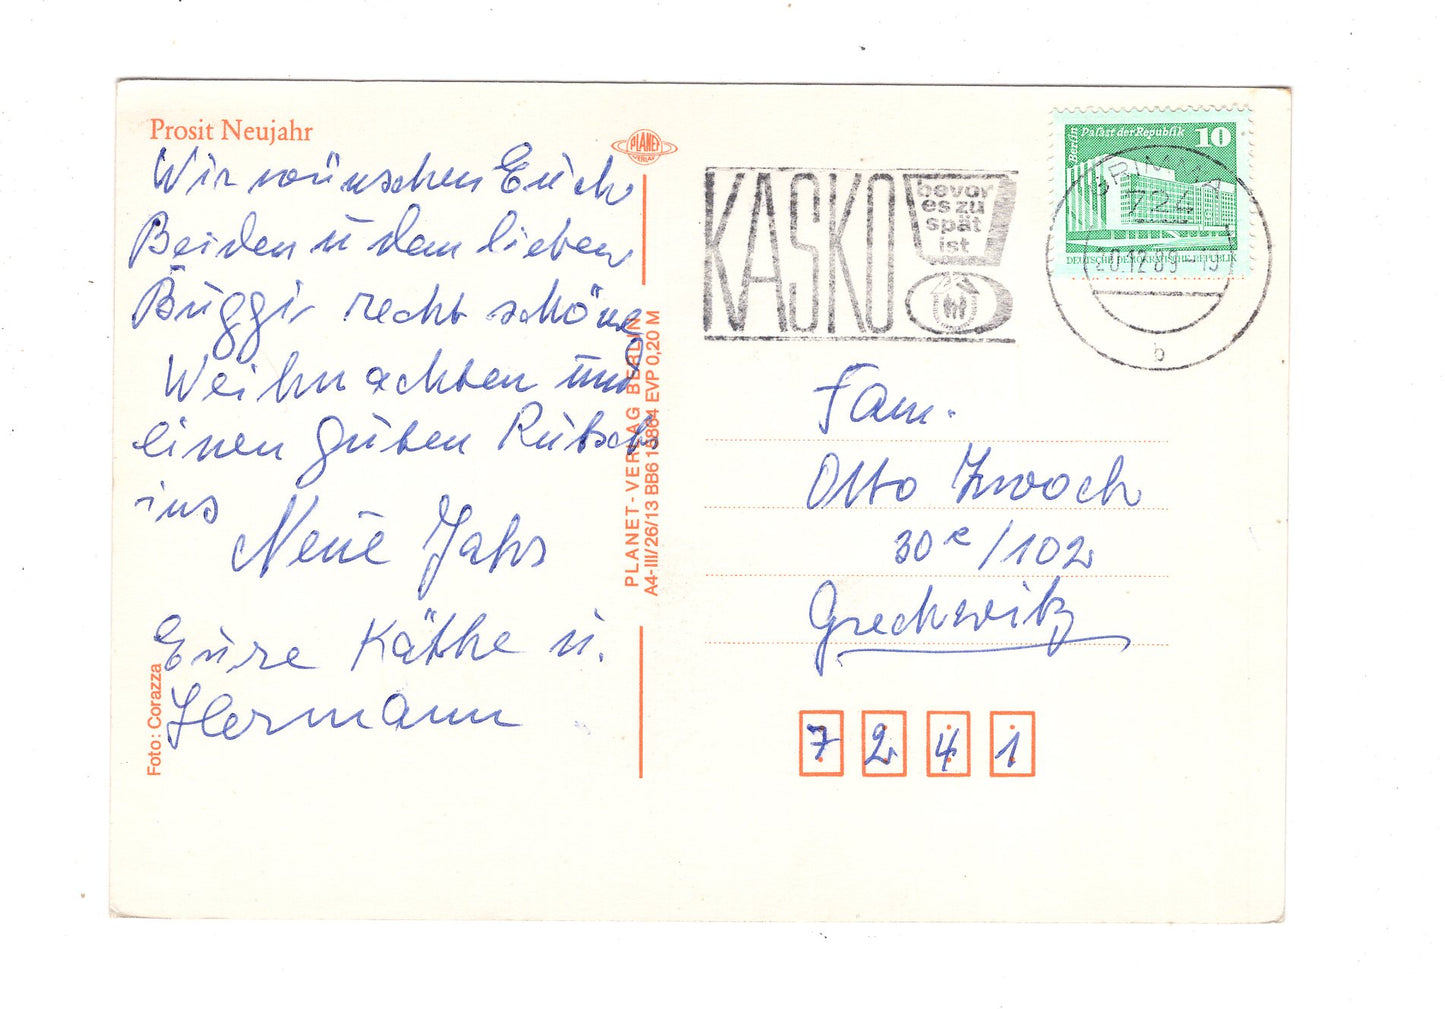 Prosit Neujahr
PLANET
VERLAG
Wir wünschen Euch
Beiden u dem lieben
Buggi recht schöne
Weihnachten und
einen guten Rutsch
ins
Neue Jahr
Eure Käthe u.
Hermann
Foto: Corazza
PLANET-VERLAG BERLIN
A4-III/26/13 BB6 EVP 0,20 M
KASKO
bevor
es zu
spät
ist
Berlin
Palast der Republik 10
DEUTSCHE DEMOKRATISCHE REPUBLIK
GRIMMA
724
20.12.89-15
b
Fam.
Otto Zwoch
30e/102
Grechwitz
7 2 4 1